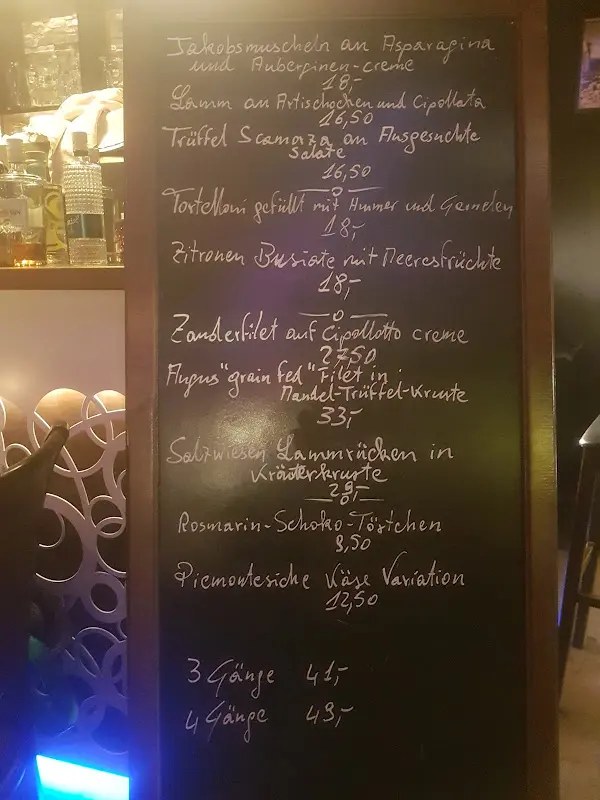 Jakobsmuscheln an Asparagina
und Auberginen-creme
18,-
Lamm an Artischocken und Cipollata
16,50
Trüffel Scamorza an Ausgesuchte
Salate
16,50
Tortelloni gefüllt mit Hummer und Garnelen
18,-
Zitronen Busiate mit Meeresfrüchte
18,-
Zanderfilet auf Cipollotto creme
27,50
Angus "grain fed" Filet in
Mandel-Trüffel-Kruste
33,-
Salzwiesen Lammrücken in
Kräuterkruste
29,-
Rosmarin-Schoko-Törtchen
9,50
Piemontesiche Käse Variation
12,50
3 Gänge 41,-
4 Gänge 49,-